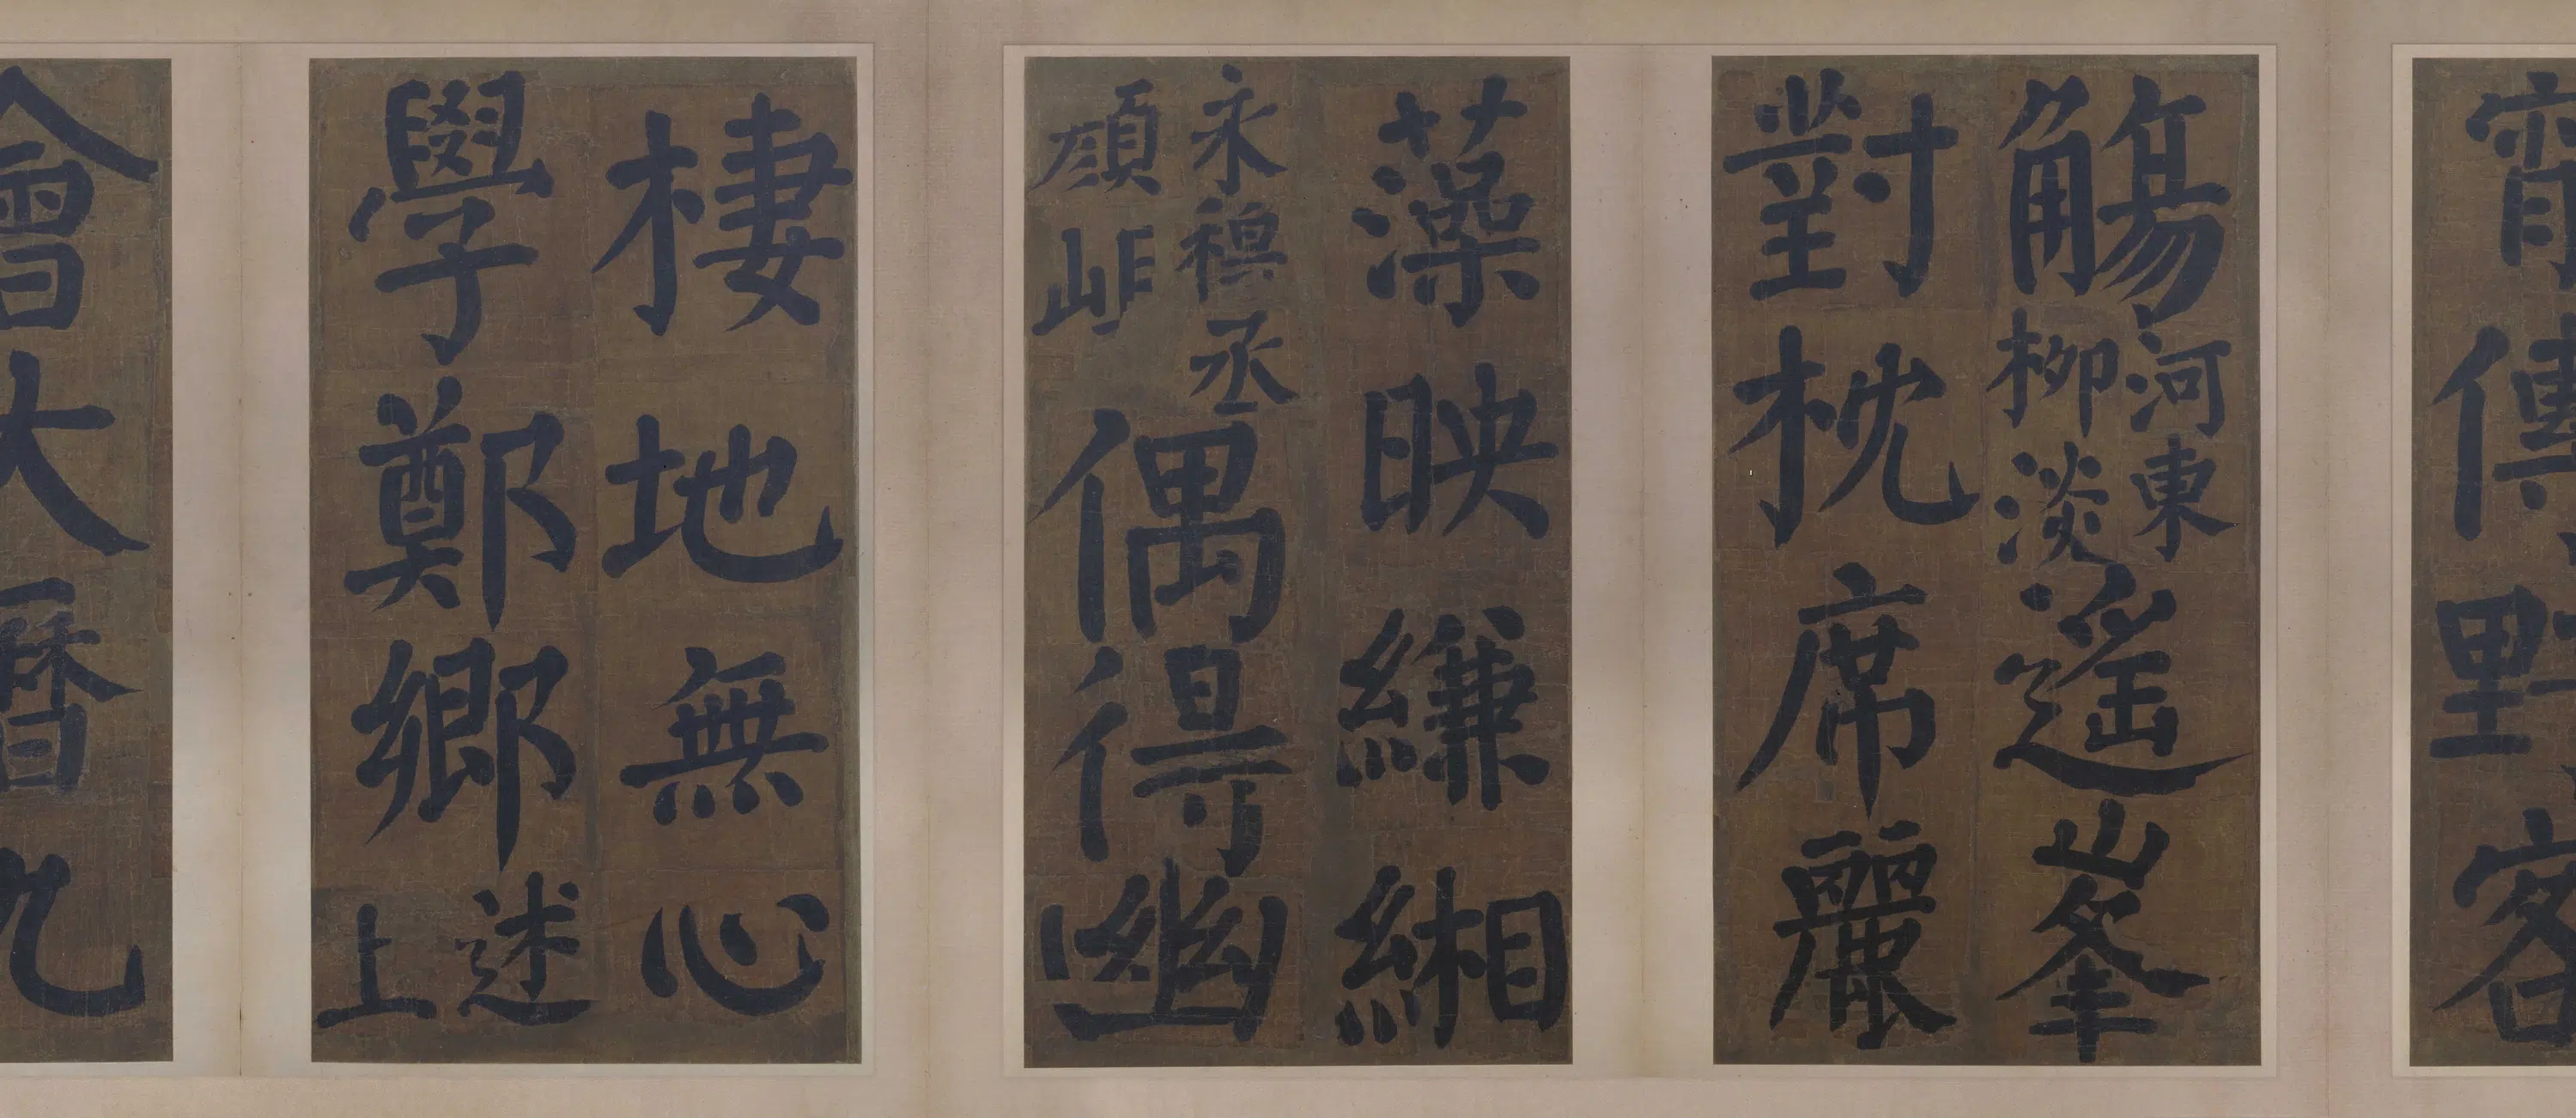 宵傳野客
觴河東柳淡遙峯
對枕席麗
藻映縑緗
永穆丞顏峴偶得幽
棲地無心
學鄭鄉述上
會大曆九